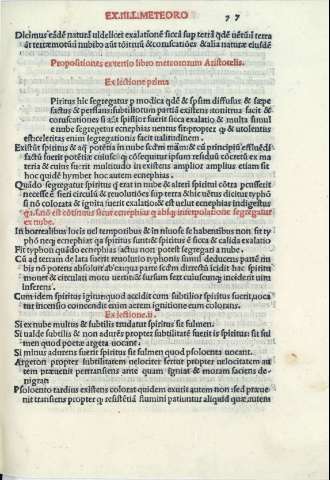 EX.IIII.METEORO 77
Dicimus eãdẽ naturã uidelicet exalationẽ siccã sup terrã qdẽ uẽtũ ĩ terra
aũt terræmotũ ĩ nubibo aũt tõitruũ &coruscatiões &alia naturæ eiusdẽ
Propositiones ex tertio libro meteororum Aristotelis.
Ex lectione prima
Piritus hic segregatur p modica qdẽ & spsum diffusus & sæpe
factus & perflans:subtiliorum partiũ existens tonitrua facit &
coruscationes si aũt spissior fuerit exalatio & multa simul
e nube segregetur ecnephias uentus fit:propter q & uiolentus
est:celeritas enim segregationis facit ualitudinem.
Existẽt spiritus & aq potẽtia in nube
factũ fuerit potẽtia cuiusq cõsequitur ipsum residuũ cõcretũ ex ma
teria & cuius fuerit multitudo in existens amplior amplius etiam sit
hoc quidẽ hymber hoc autem ecnephias.
Quãdo segregatur spiritus q erat in nube & alteri spiritui cõtra
necesse è fieri circulũ & reuolutiõẽ sup terrã &hic uẽtus dicitur typhõ
si nõ colorata & ignita fuerit exalatio& est uelut ecnephias indigestus
ex nube.
In borealibus locis uel temporibus & in niuose se habentibus non fit ty
phõ neq ecnephias:qa spiritus sunt& spiritus è sicca & calida exalatio
Fit typhon quãdo ecnephias factus non potest segregari a nube.
Cũ ad terram de lata fuerit reuolutio typhonis simul deducens partẽ nu
bis nõ potens absolui ab ea:qua parte secdm directũ icidit hac spiritu
mouet & circulari motu uertit& sursum fert cuicũmq; incident uim
inferens.
Cum idem spiritus ignitur:quod accidit cum subtilior spiritus fuerit:uoca
tur incensio coincendit enim aerem ignitione cum colorans.
Ex lectione.ii.
Si ex nube multus & subtilis trudatur spiritus fit fulmen.
Si ualde subtilis & non adurẽs propter subtilitatẽ fuerit is spiritus: fit ful
men quod poetæ argeta uocant.
Si minus adurens fuerit spiritus fit fulmen quod psoloenta uocant.
Argeton propter subtilitatem uelociter fertur propter uelocitatem au
tem præuenit pertransiens ante quam igniat & moram faciens de
nigrat
Psoloento tardius existens colorat quidem exurit autem non: sed præue
nit transiens propter q resistẽtiã flumini patiuntur aliquid quæ autem